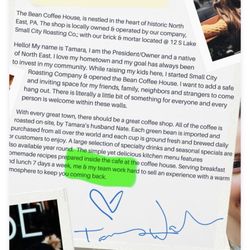 The Bean Coffee House, is nestled in the heart of historic North
East, PA. The shop is locally owned & operated by our company,
Small City Roasting Co.; with our brick & mortar located @ 12 S Lake
Hello! My name is Tamara, I am the President/Owner and a native
of North East. I love my hometown and my goal has always been
to invest in my community. While raising my kids here, I started Small City
Roasting Company & opened the Bean Coffee House. I want to add a safe
and inviting space for my friends, family, neighbors and strangers to come
hang out. There is literally a little bit of something for everyone and every
person is welcome within these walls.
With every great town, there should be a great coffee shop. All of the coffee is
roasted on site, by Tamara's husband Nate. Each green bean is imported and
purchased from all over the world and each cup is ground fresh and brewed daily
for customers to enjoy. A large selection of specialty drinks and seasonal specials are
also available year round. The simple yet delicious kitchen menu features
homemade recipes prepared inside the cafe at the coffee house. Serving breakfast
and lunch 7 days a week, me & my team work hard to sell an experience with a warm
atmosphere to keep you coming back.